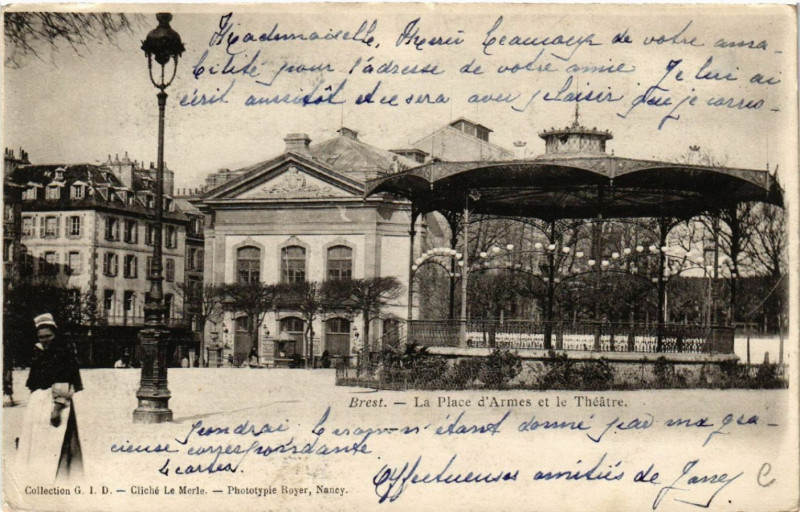 Mademoiselle, Merci beaucoup de votre ama-
bilité pour l'adresse de votre amie Je lui ai
écrit aussitôt et ce sera avec plaisir que je corres-
pondrai. étant donné par ma gra-
cieuse correspondante
4 cartes.
Effectueuses amitiés de
Brest. — La Place d'Armes et le Théâtre.
Collection G. I. D. — Cliché Le Merle. — Phototypie Royer, Nancy.